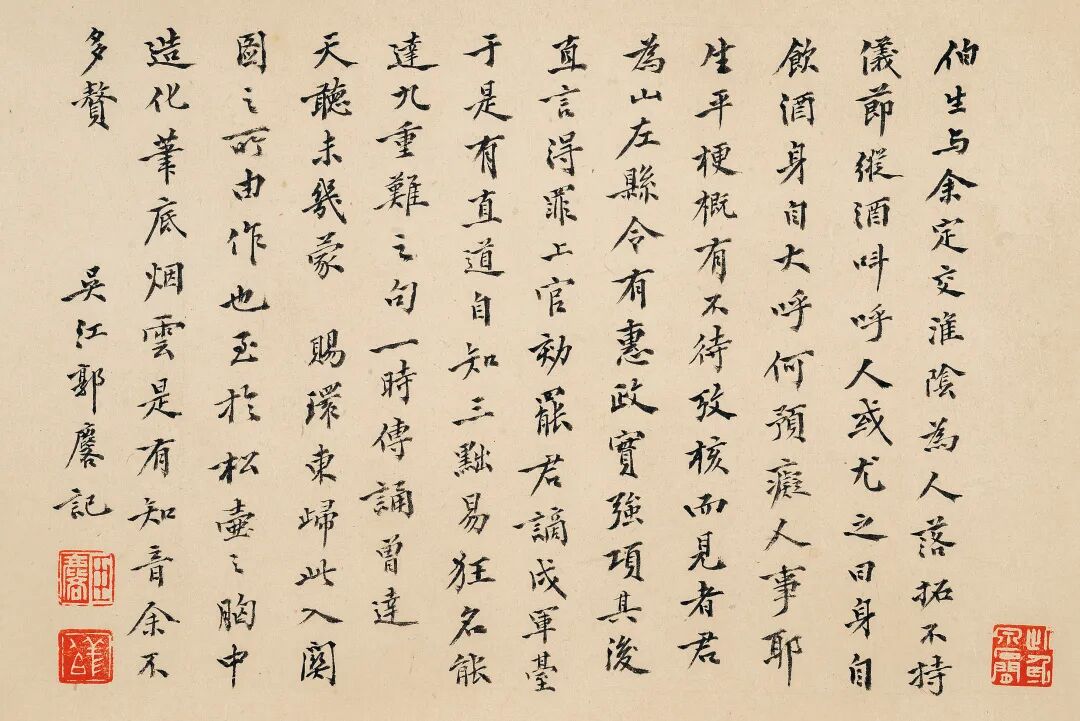 伯生与余定交淮陰為人落拓不持
儀節縱酒叫呼人或尤之曰身自
飲酒身自大呼何預癡人事耶
生平梗概有不待攷核而見者君
為山左縣令有惠政實強項其後
直言得罪上官劾罷君謫戍軍臺
于是有直道自知三黜易狂名能
達九重難之句一時傳誦曾達
天聽未幾蒙 賜環東歸此入関
圖之所由作也至於松壺之胸中
造化筆底烟雲是有知音余不
多贅 吳江郭麐記